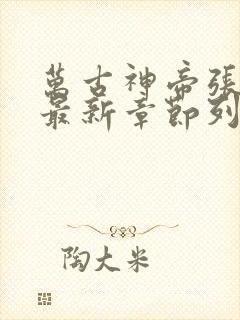 萬古神帝張
最新章節列
陶大米